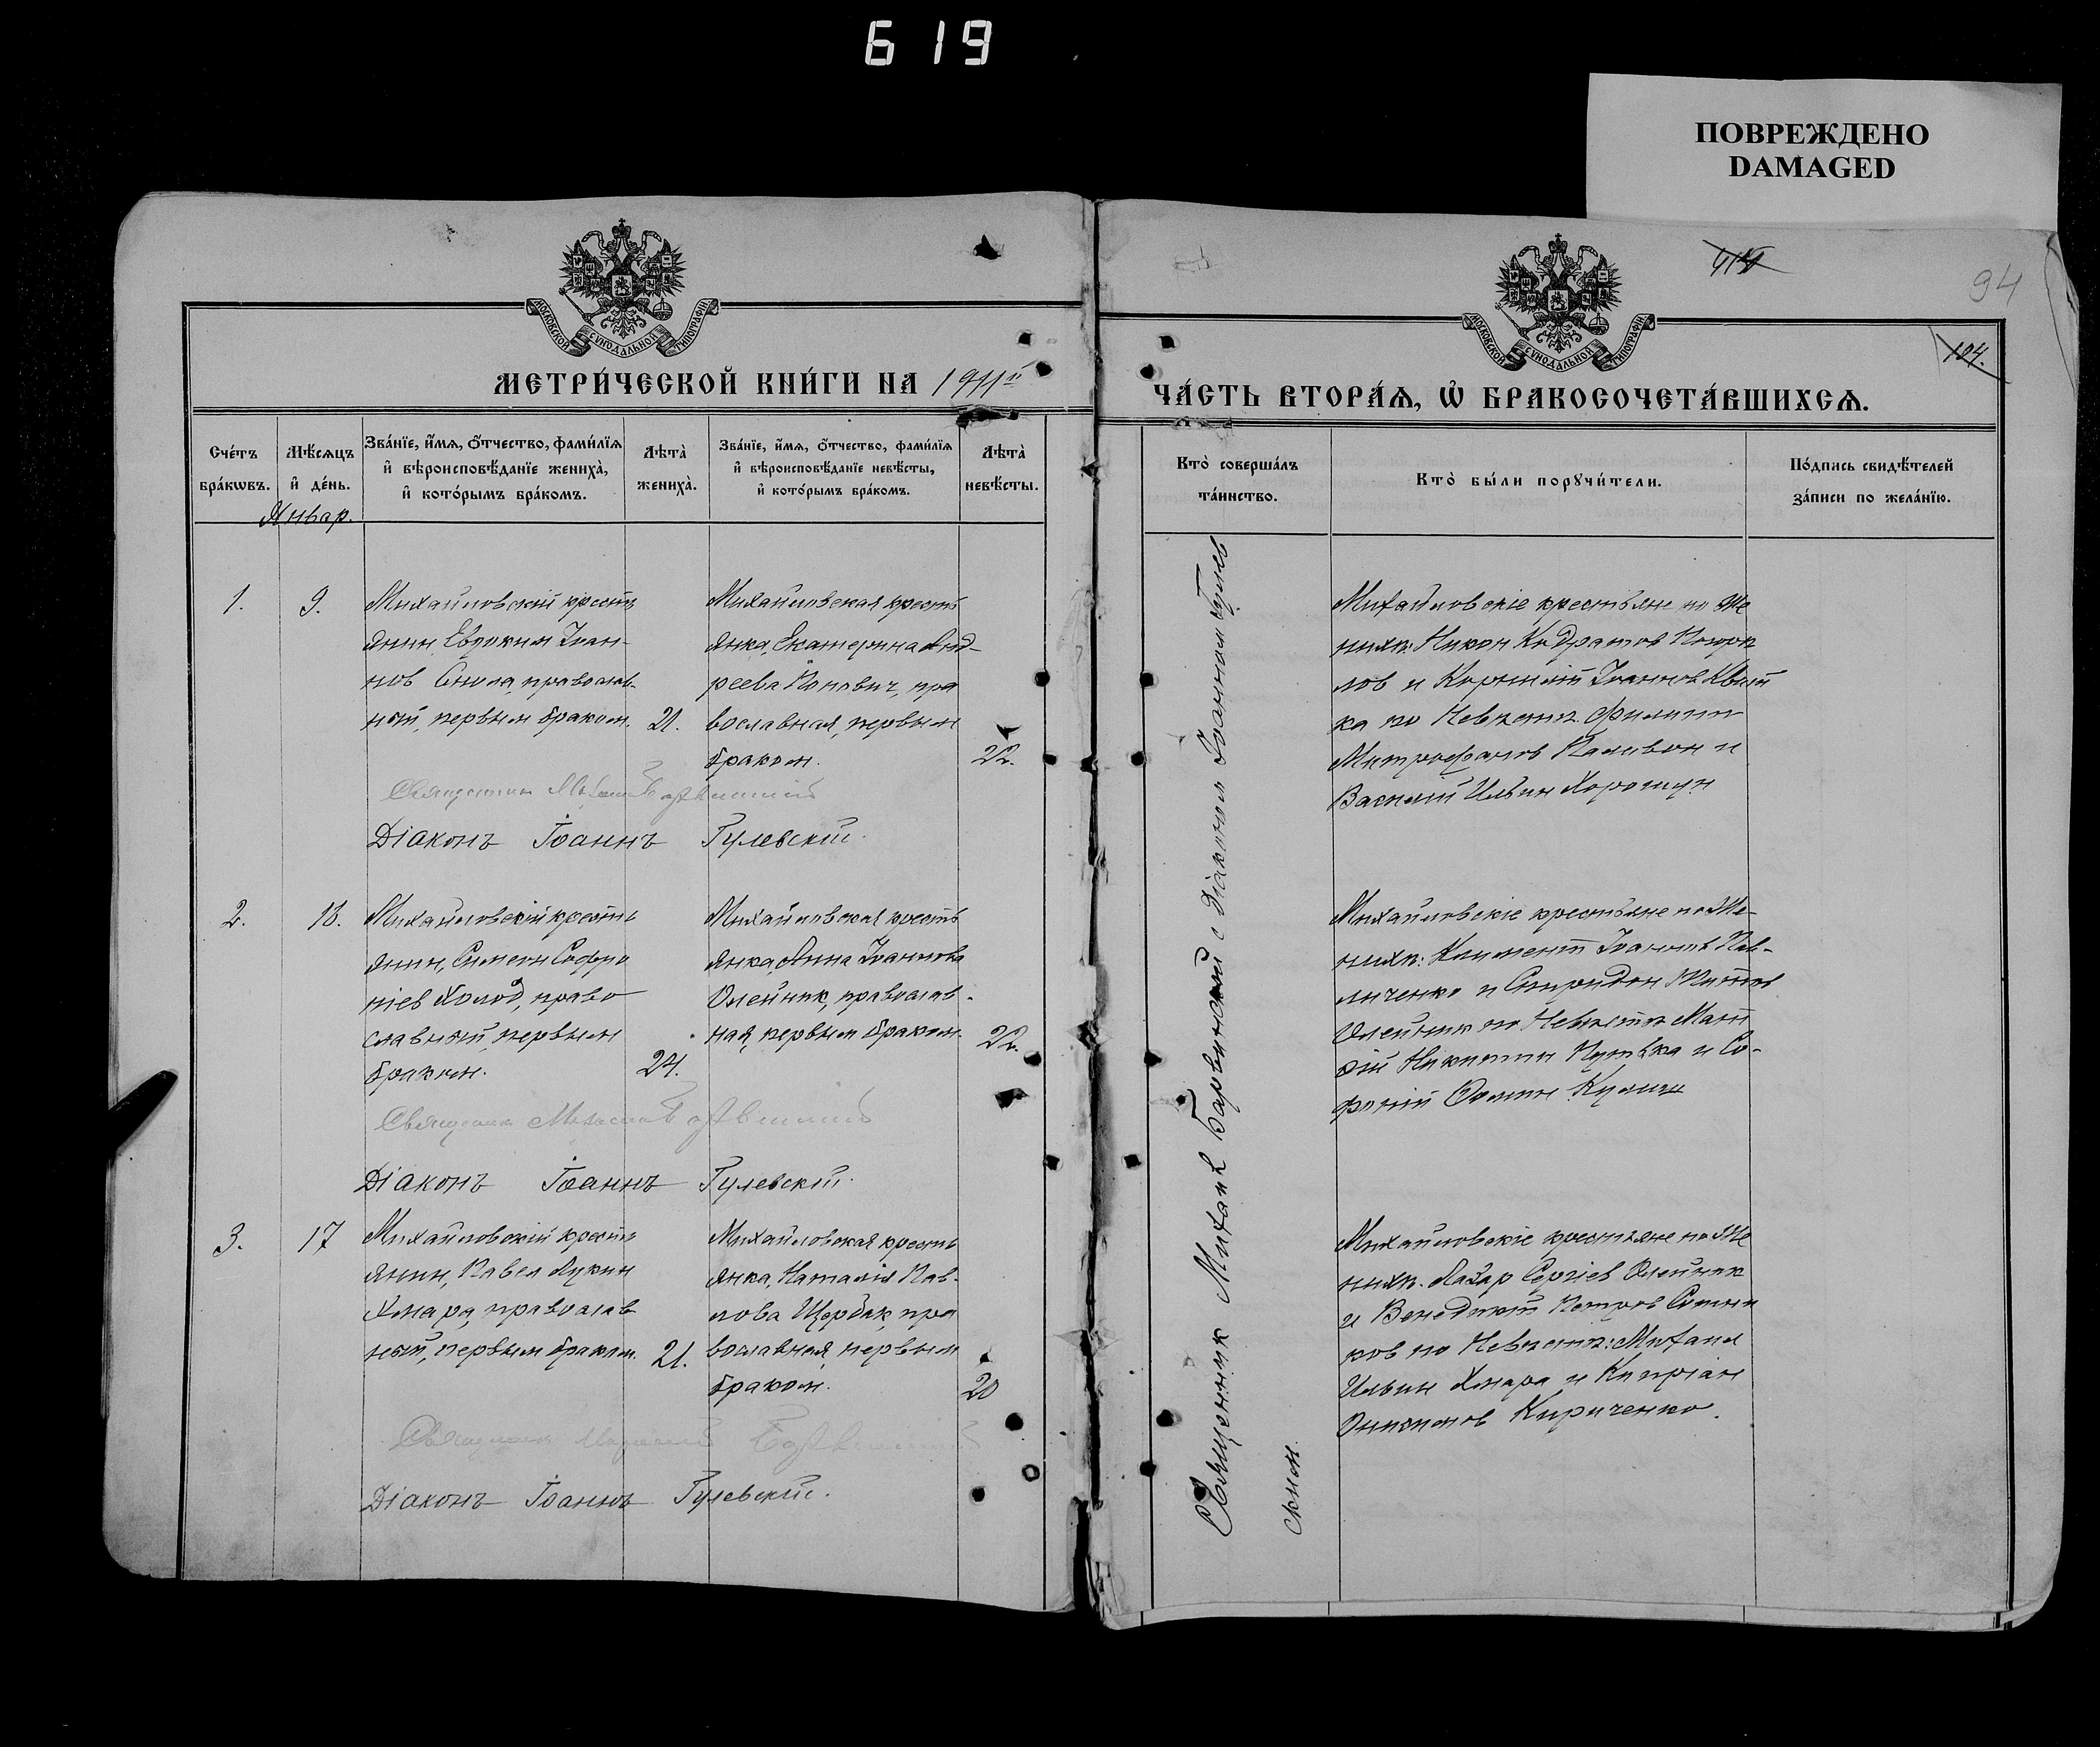 619
ПОВРЕЖДЕНО
DAMAGED
94
104.
МОСКОВСКОЙ СУНОДАЛЬНОЙ ТИПОГРАФІИ
МОСКОВСКОЙ СУНОДАЛЬНОЙ ТИПОГРАФІИ
МЕТРИ́ЧЕСКОЙ КНИ́ГИ НА 1911й
ЧА́СТЬ ВТОРА́Ѧ, Ѽ БРАКОСОЧЕТА́ВШИХСѦ.
Сче́тъ бра́кѡвъ.
Мѣ́сѧцъ и҆ де́нь.
Зва́нїе, и҆́мѧ, ѻ҆́тчество, фами́лїѧ и҆ вѣроисповѣ́данїе жениха̀, и҆ кото́рымъ бра́комъ.
Лѣта̀ жениха̀.
Зва́нїе, и҆́мѧ, ѻ҆́тчество, фами́лїѧ и҆ вѣроисповѣ́данїе невѣ́сты, и҆ кото́рымъ бра́комъ.
Лѣта̀ невѣ́сты.
Кто̀ соверша́лъ та́инство.
Кто̀ бы́ли порꙋчи́тели.
По́дпись свидѣ́телей за́писи по жела́нїю.
Январ.
1.
9.
Михайловскій кресть
янин Евдоким Іван-
нов Смола, православ-
ный, первым браком.
21.
Михайловская кресть
янка, Екатерина Анд-
реева Попович, пра
вославная, первым
браком.
22.
Михайловскіе крестьяне по Же
нихѣ: Никон Кодратов
лов и Корнилій Іваннов Квіт
ка по Невѣстѣ. Филипп
Митрофанов Паливон и
Василій Ильин Хорошун
Священник Михаил
Діаконъ Іоаннъ Гулевскій.
2.
16.
Михайловскій кресть
янин, Симеон Софро
ніев Холод, право
славный, первым
браком.
24.
Михайловская кресть
янка, Анна Іваннова
Олейник, православ-
ная, первым браком.
22.
Михайловскіе крестьяне по Же-
нихѣ: Климент Іваннов Пав-
личенко и Спиридон Титов
Олейник по Невѣстѣ Мат
фій Никитин и Со-
фоній Фомин Кулиш
Священник Михаил
Діаконъ Іоаннъ Гулевскій.
3.
17
Михайловскій кресть
янин, Павел Лукин
Хмара, православ
ный, первым браком.
21.
Михайловская кресть
янка, Наталія Пав-
лова Щербак, пра
вославная, первым
браком.
20
Михайловскіе крестьяне по Же
нихѣ. Лазар Сергіев Олейник
и Венедикт Петров
ков по Невѣстѣ: Михаил
Ильин Хмара и Кипріан
Кириченко.
Священник
Діаконъ Іоаннъ Гулевскій.
Священник Михаил Барвинский с Діаконом Іоанном Гулев
ским.